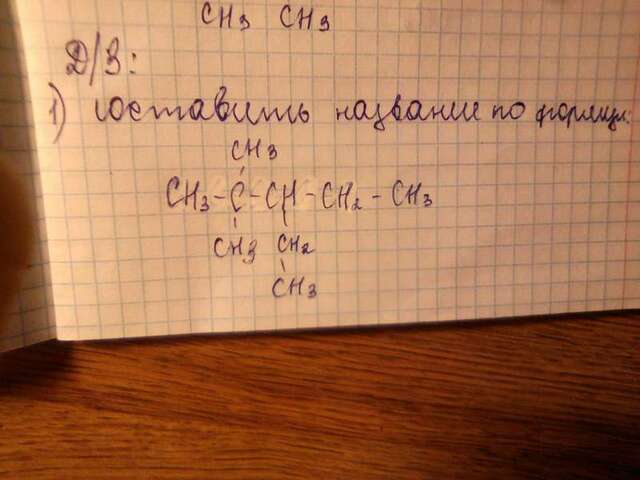 CH3 CH3
Д/З:
1) Составить название по формуле:
CH3
CH3-C-CH-CH2-CH3
CH3 CH2
CH3